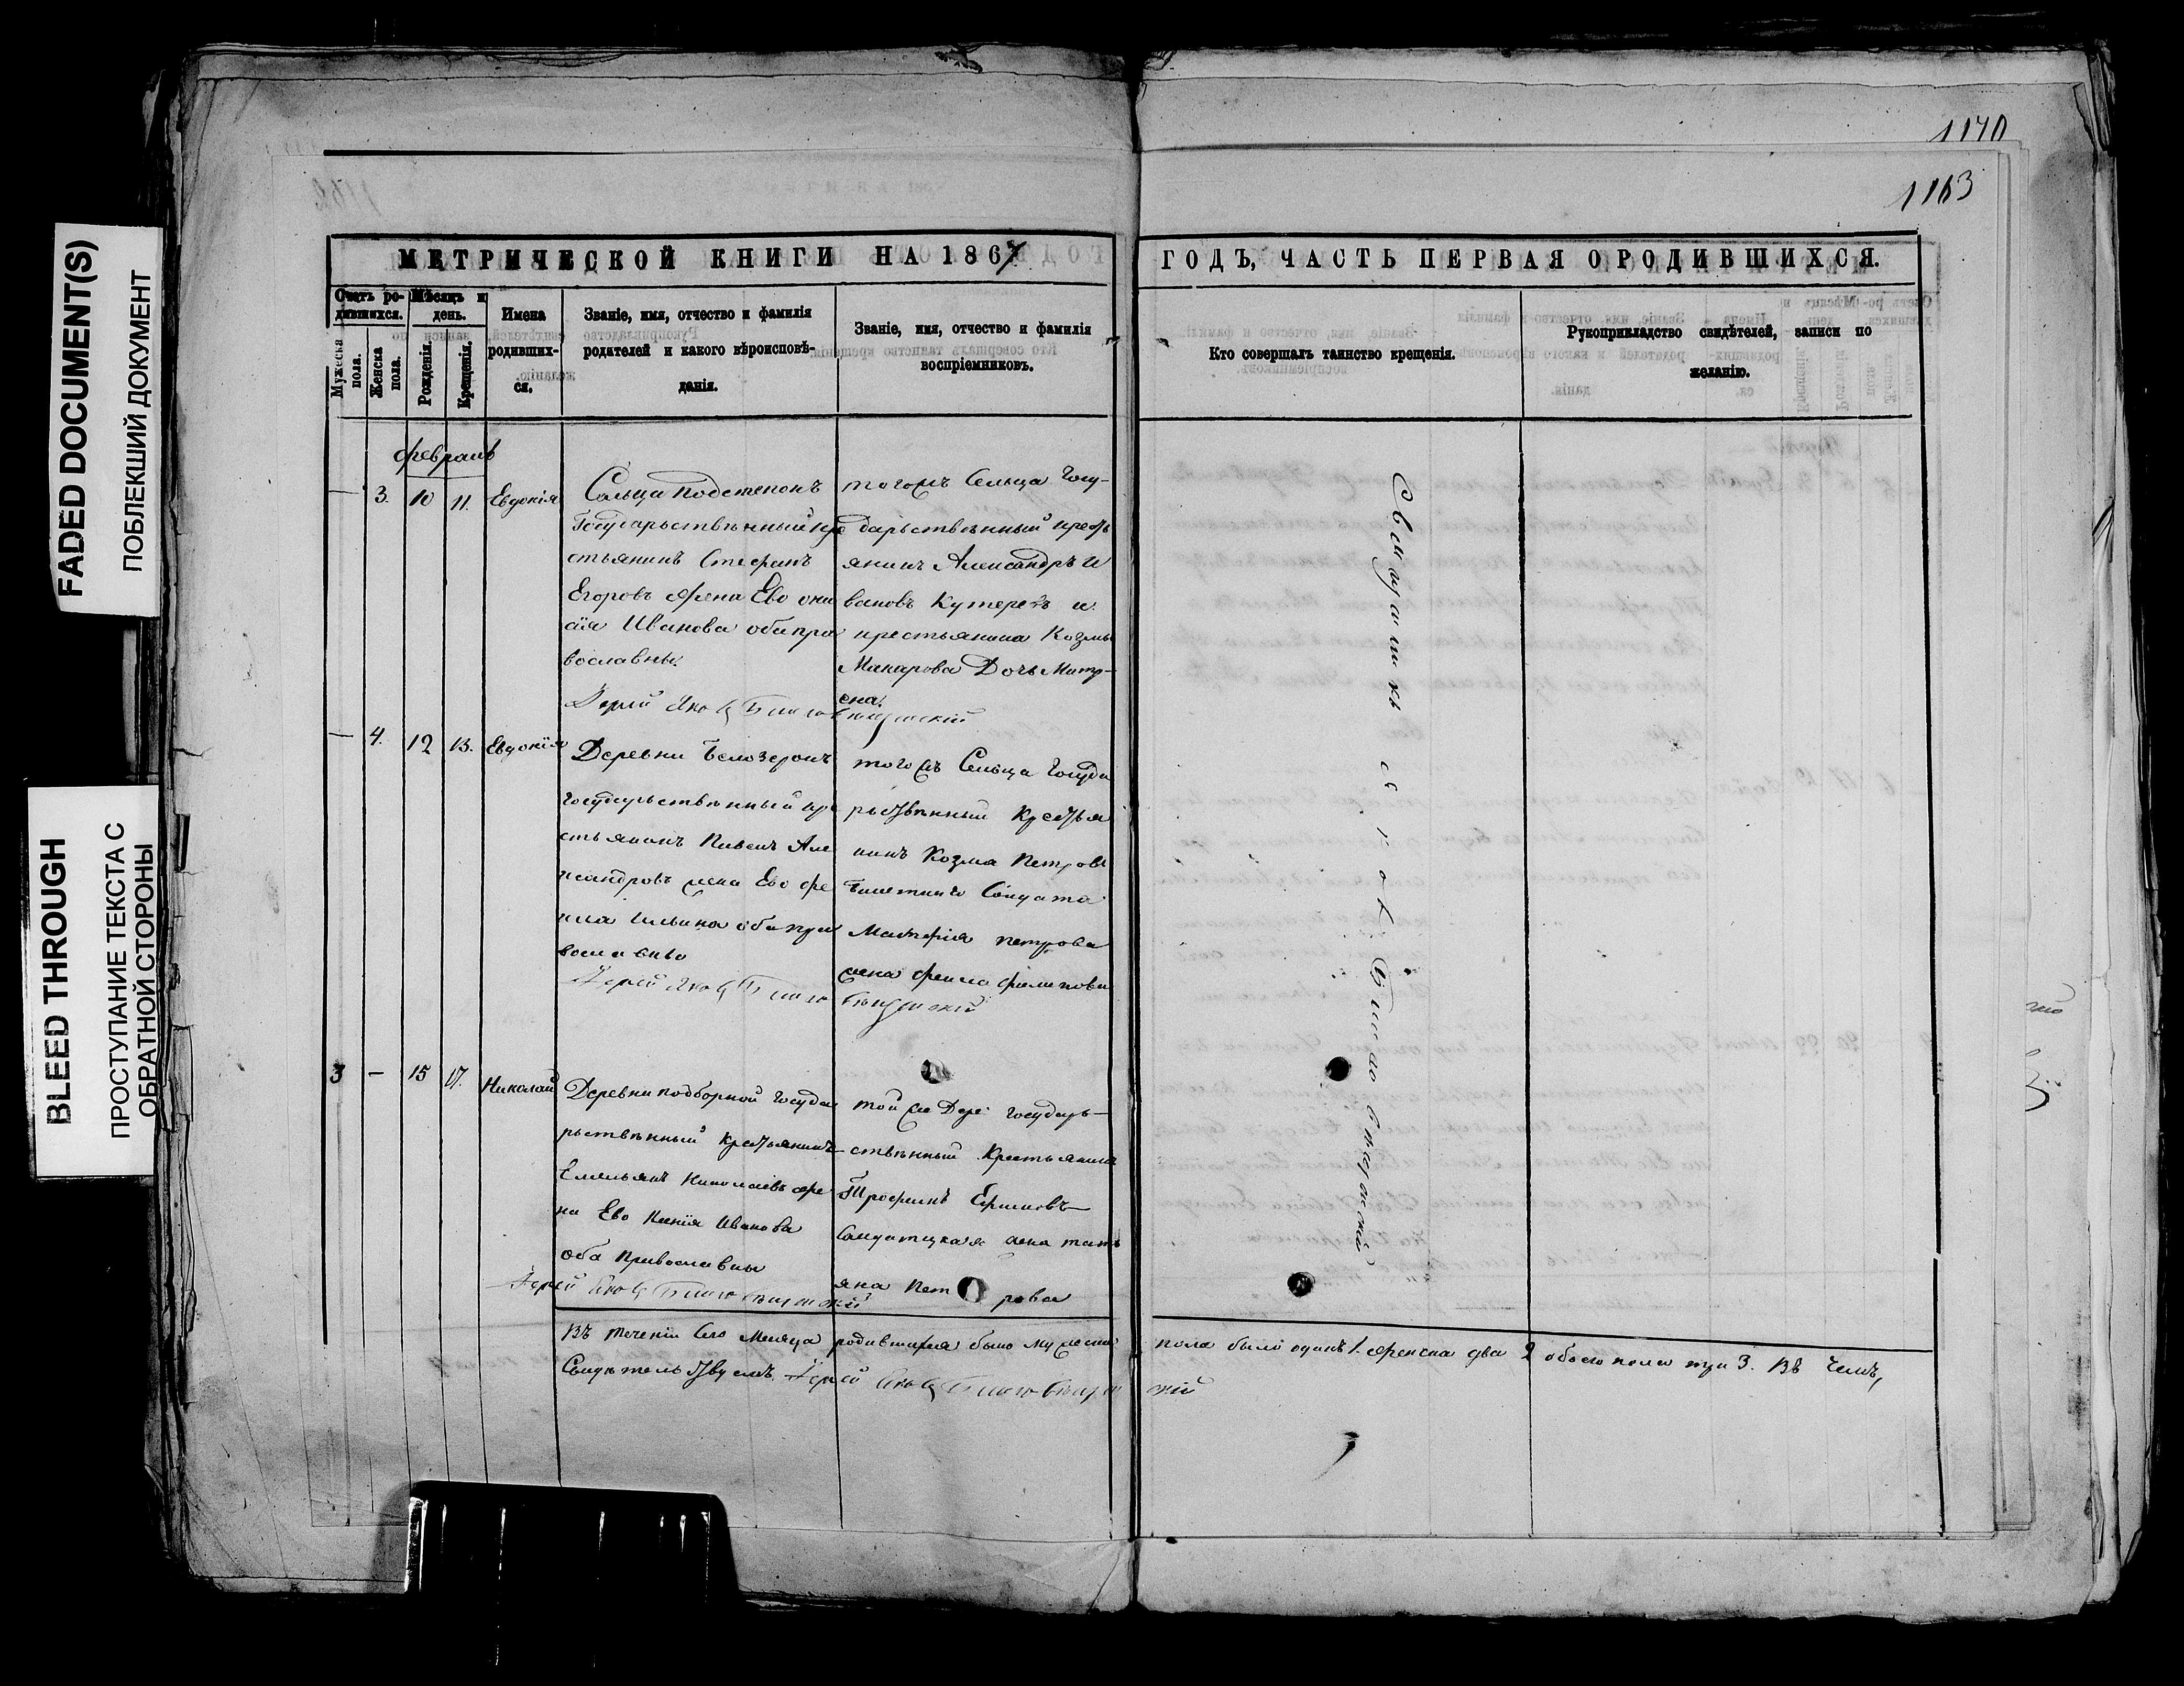 FADED DOCUMENT(S)
ПОБЛЕКШИЙ ДОКУМЕНТ
BLEED THROUGH
ПРОСТУПАНИЕ ТЕКСТА С
ОБРАТНОЙ СТОРОНЫ
1163
МЕТРИЧЕСКОЙ КНИГИ НА 1867
ГОДЪ, ЧАСТЬ ПЕРВАЯ О РОДИВШИХСЯ.
Счетъ ро-
дившихся.
Мужеска
пола.
Женска
пола.
Мѣсяцъ и
день.
Рожденія.
Крещенія.
Имена
родивших-
ся.
Званіе, имя, отчество и фамилія
родителей и какого вѣроисповѣ-
данія.
Званіе, имя, отчество и фамилія
воспріемниковъ.
Кто совершалъ таинство крещенія.
Рукоприкладство свидѣтелей, записи по
желанію.
февраль
— 3. 10 11. Евдокія
Сельца Подстепокъ
Государьственный кре
стьянинъ Стефанъ
Егоровъ жена Ево
Иванова оба пра
вославны.
тогожъ Сельца Госу-
дарьственный кресть
янинъ Александръ И
вановъ и
крестьянина Козмы
Макарова Дочь Матр-
ена.
— 4. 12 13. Евдокія
Деревни Белозерокъ
государьственный кре
стьянинъ Але
ксандровъ жена Ево Фе
кла Ильина оба пра
вославны
тогожъ Сельца Госуда
рьственный Крестья
нинъ Козма Петровъ
Солдата
Петрова
жена Фекла Филипова
3 — 15 17. Николай
Деревни подборной Госуда
рьственный Крестьянинъ
Емельянъ Николаевъ же
на Ево Ксенія Иванова
оба Православны
той же Дере: Государь-
ственный Крестьянинъ
Трофимъ Ефимовъ
Солдатцкая жена тать
яна Пет рова
Въ течении Сего Месяца родившихся было мужеска пола было одинъ 1. женска два 2 обоего пола три 3. Въ Чемъ,
Свидетельствуемъ